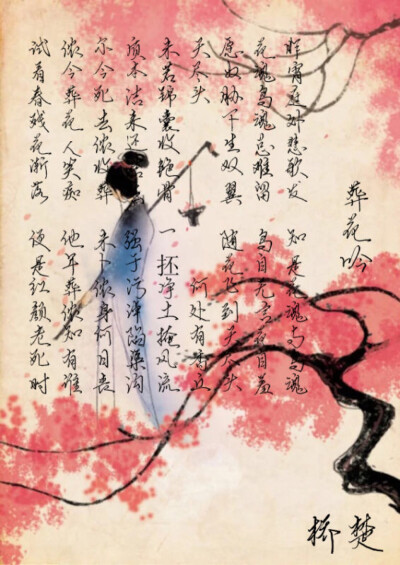 葬花吟
昨宵庭外悲歌发 知是花魂与鸟魂
花魂鸟魂总难留 鸟自无言花自羞
愿奴胁下生双翼 随花飞到天尽头
天尽头 何处有香丘
未若锦囊收艳骨 一抔净土掩风流
质本洁来还洁去 强于污淖陷渠沟
尔今死去侬收葬 未卜侬身何日丧
侬今葬花人笑痴 他年葬侬知有谁
试看春残花渐落 便是红颜老死时
楚